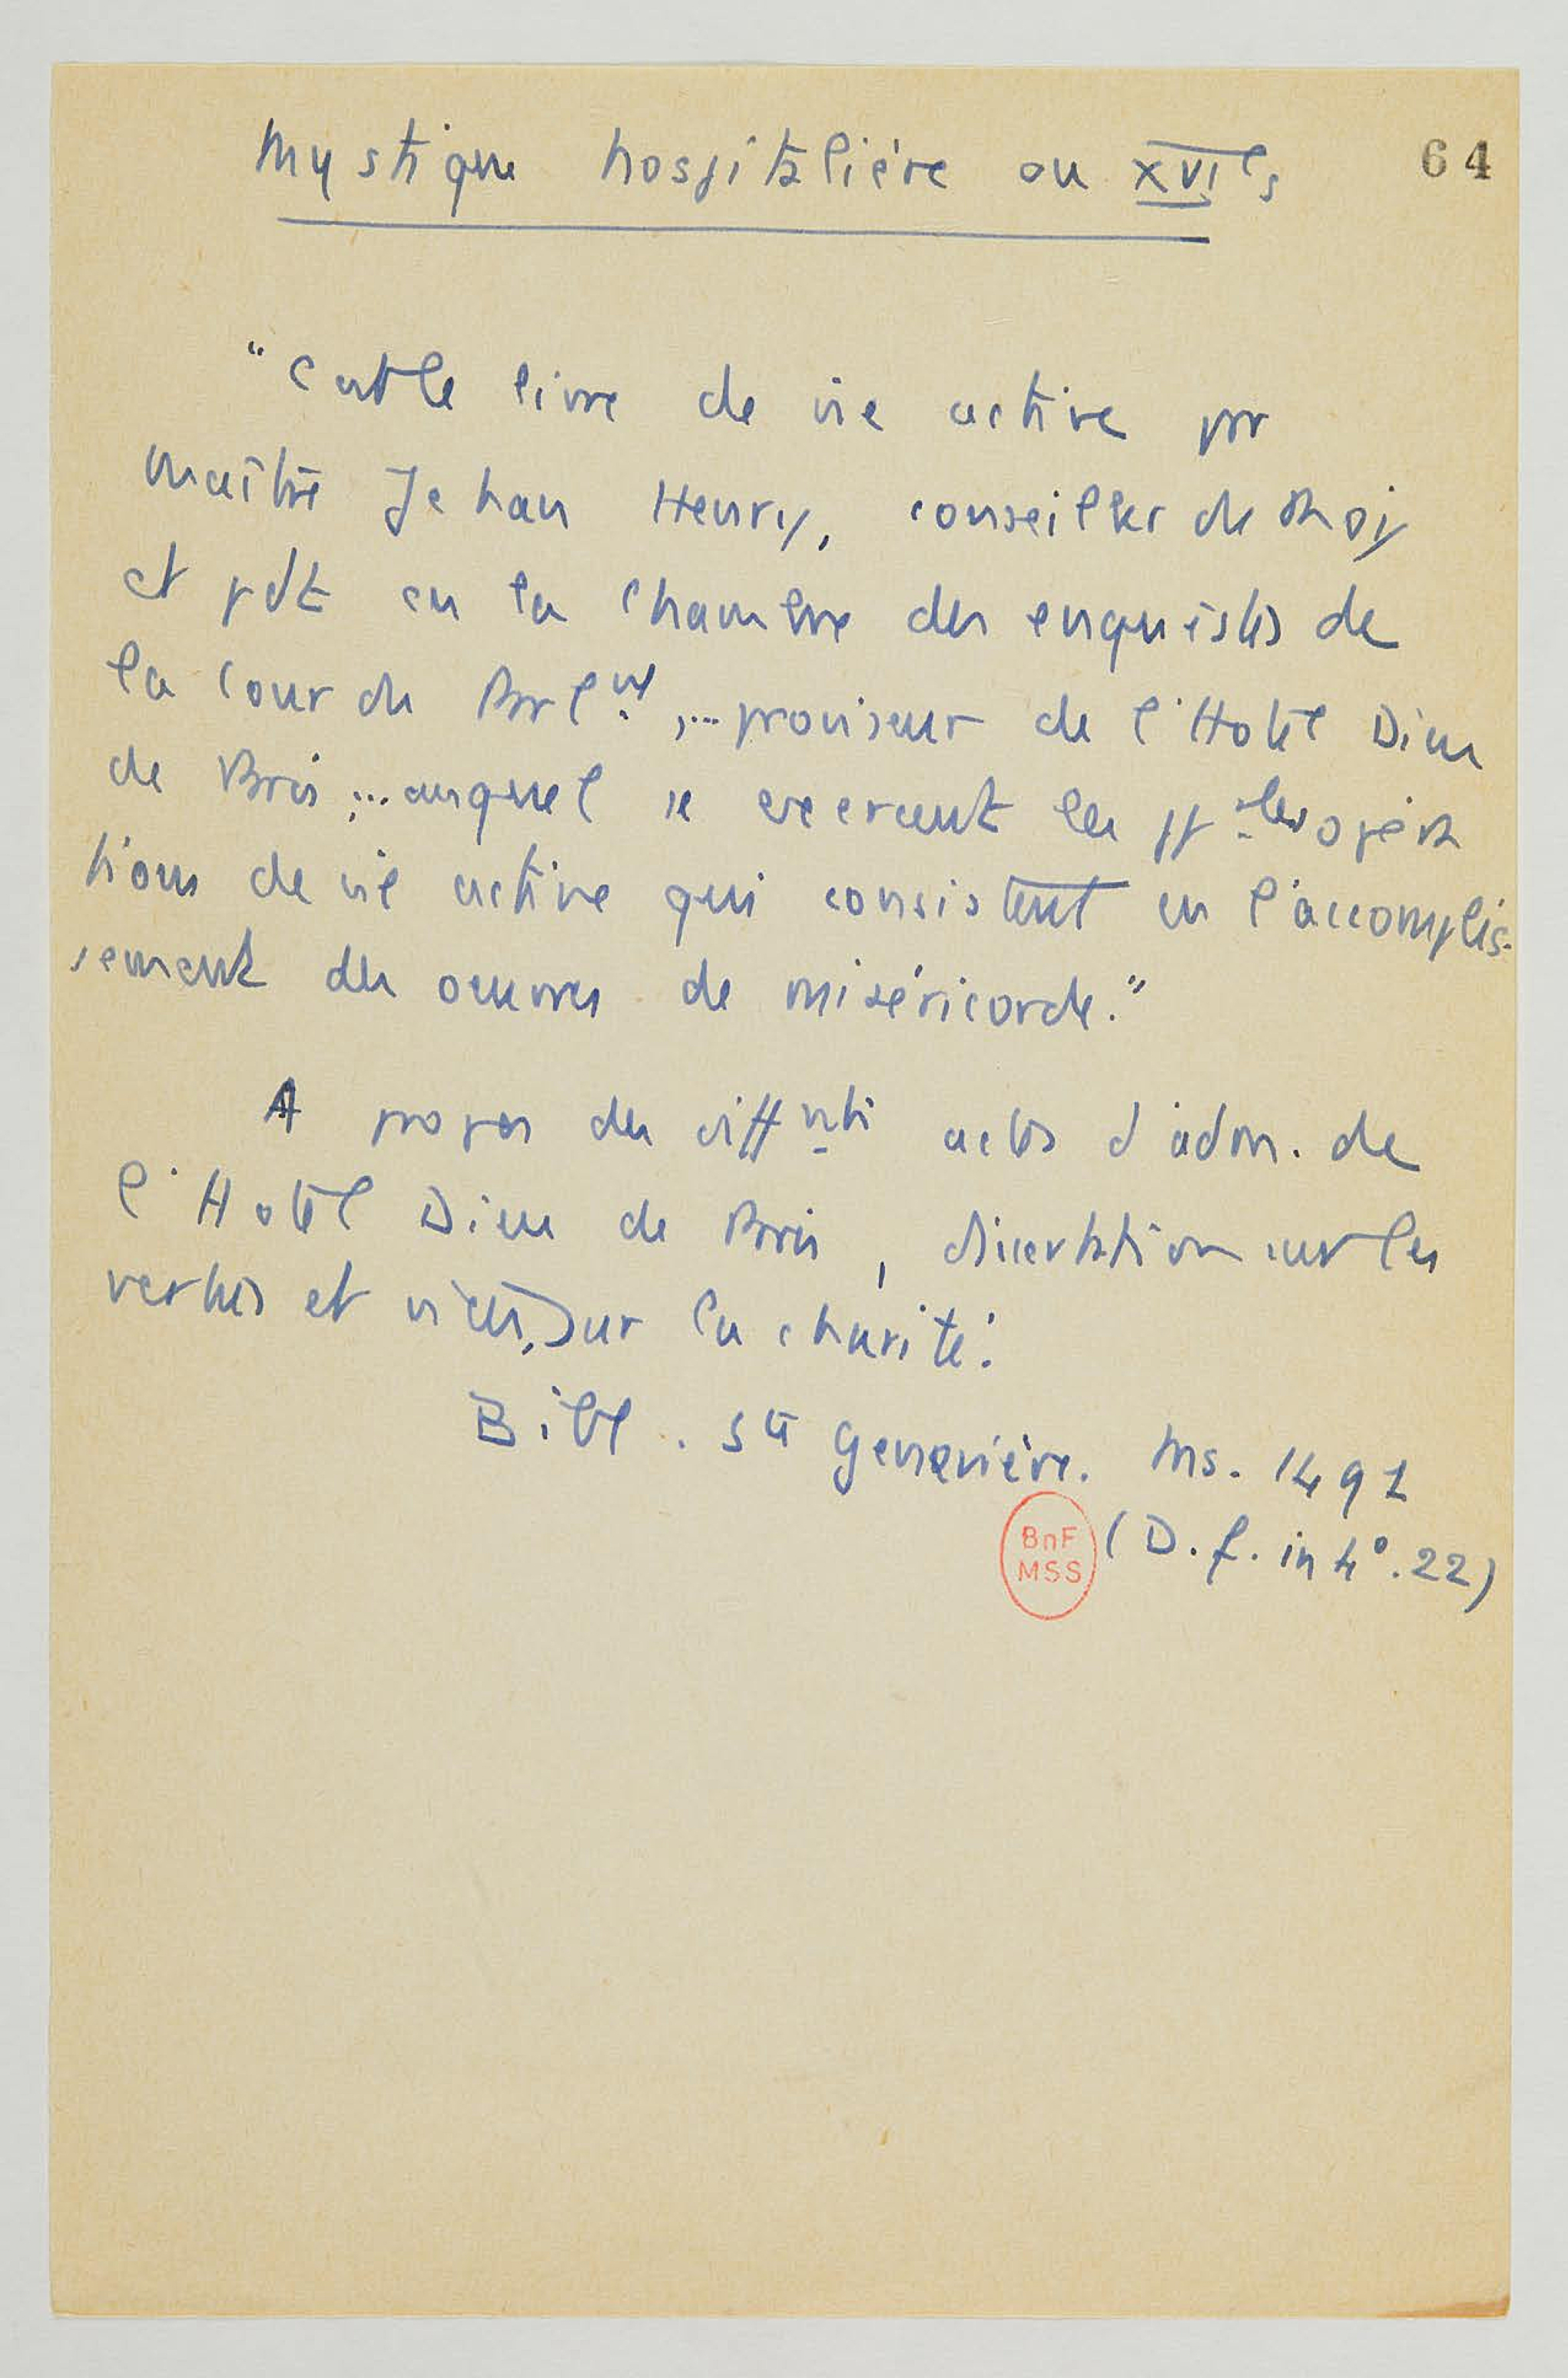 Mystique hospitalière au XVIe s
64
"C'est le livre de vie active par
maître Jehan Henry, conseiller du Roy
et pdt en la chambre des enquêstes de
la Cour de Parlnt,... proviseur de l'Hotel Dieu
de Paris ;... auquel se exercent les ppales opéra
tions de vie active qui consistent en l'accomplis-
sement des oeuvres de miséricorde."
A propos des diffnts actes d'adm. de
l'Hotel Dieu de Paris, dissertation sur les
vertus et vices, sur la charité.
Bibl. Ste Geneviève. Ms. 1491
(D. f. in 4°. 22)
BnF
MSS